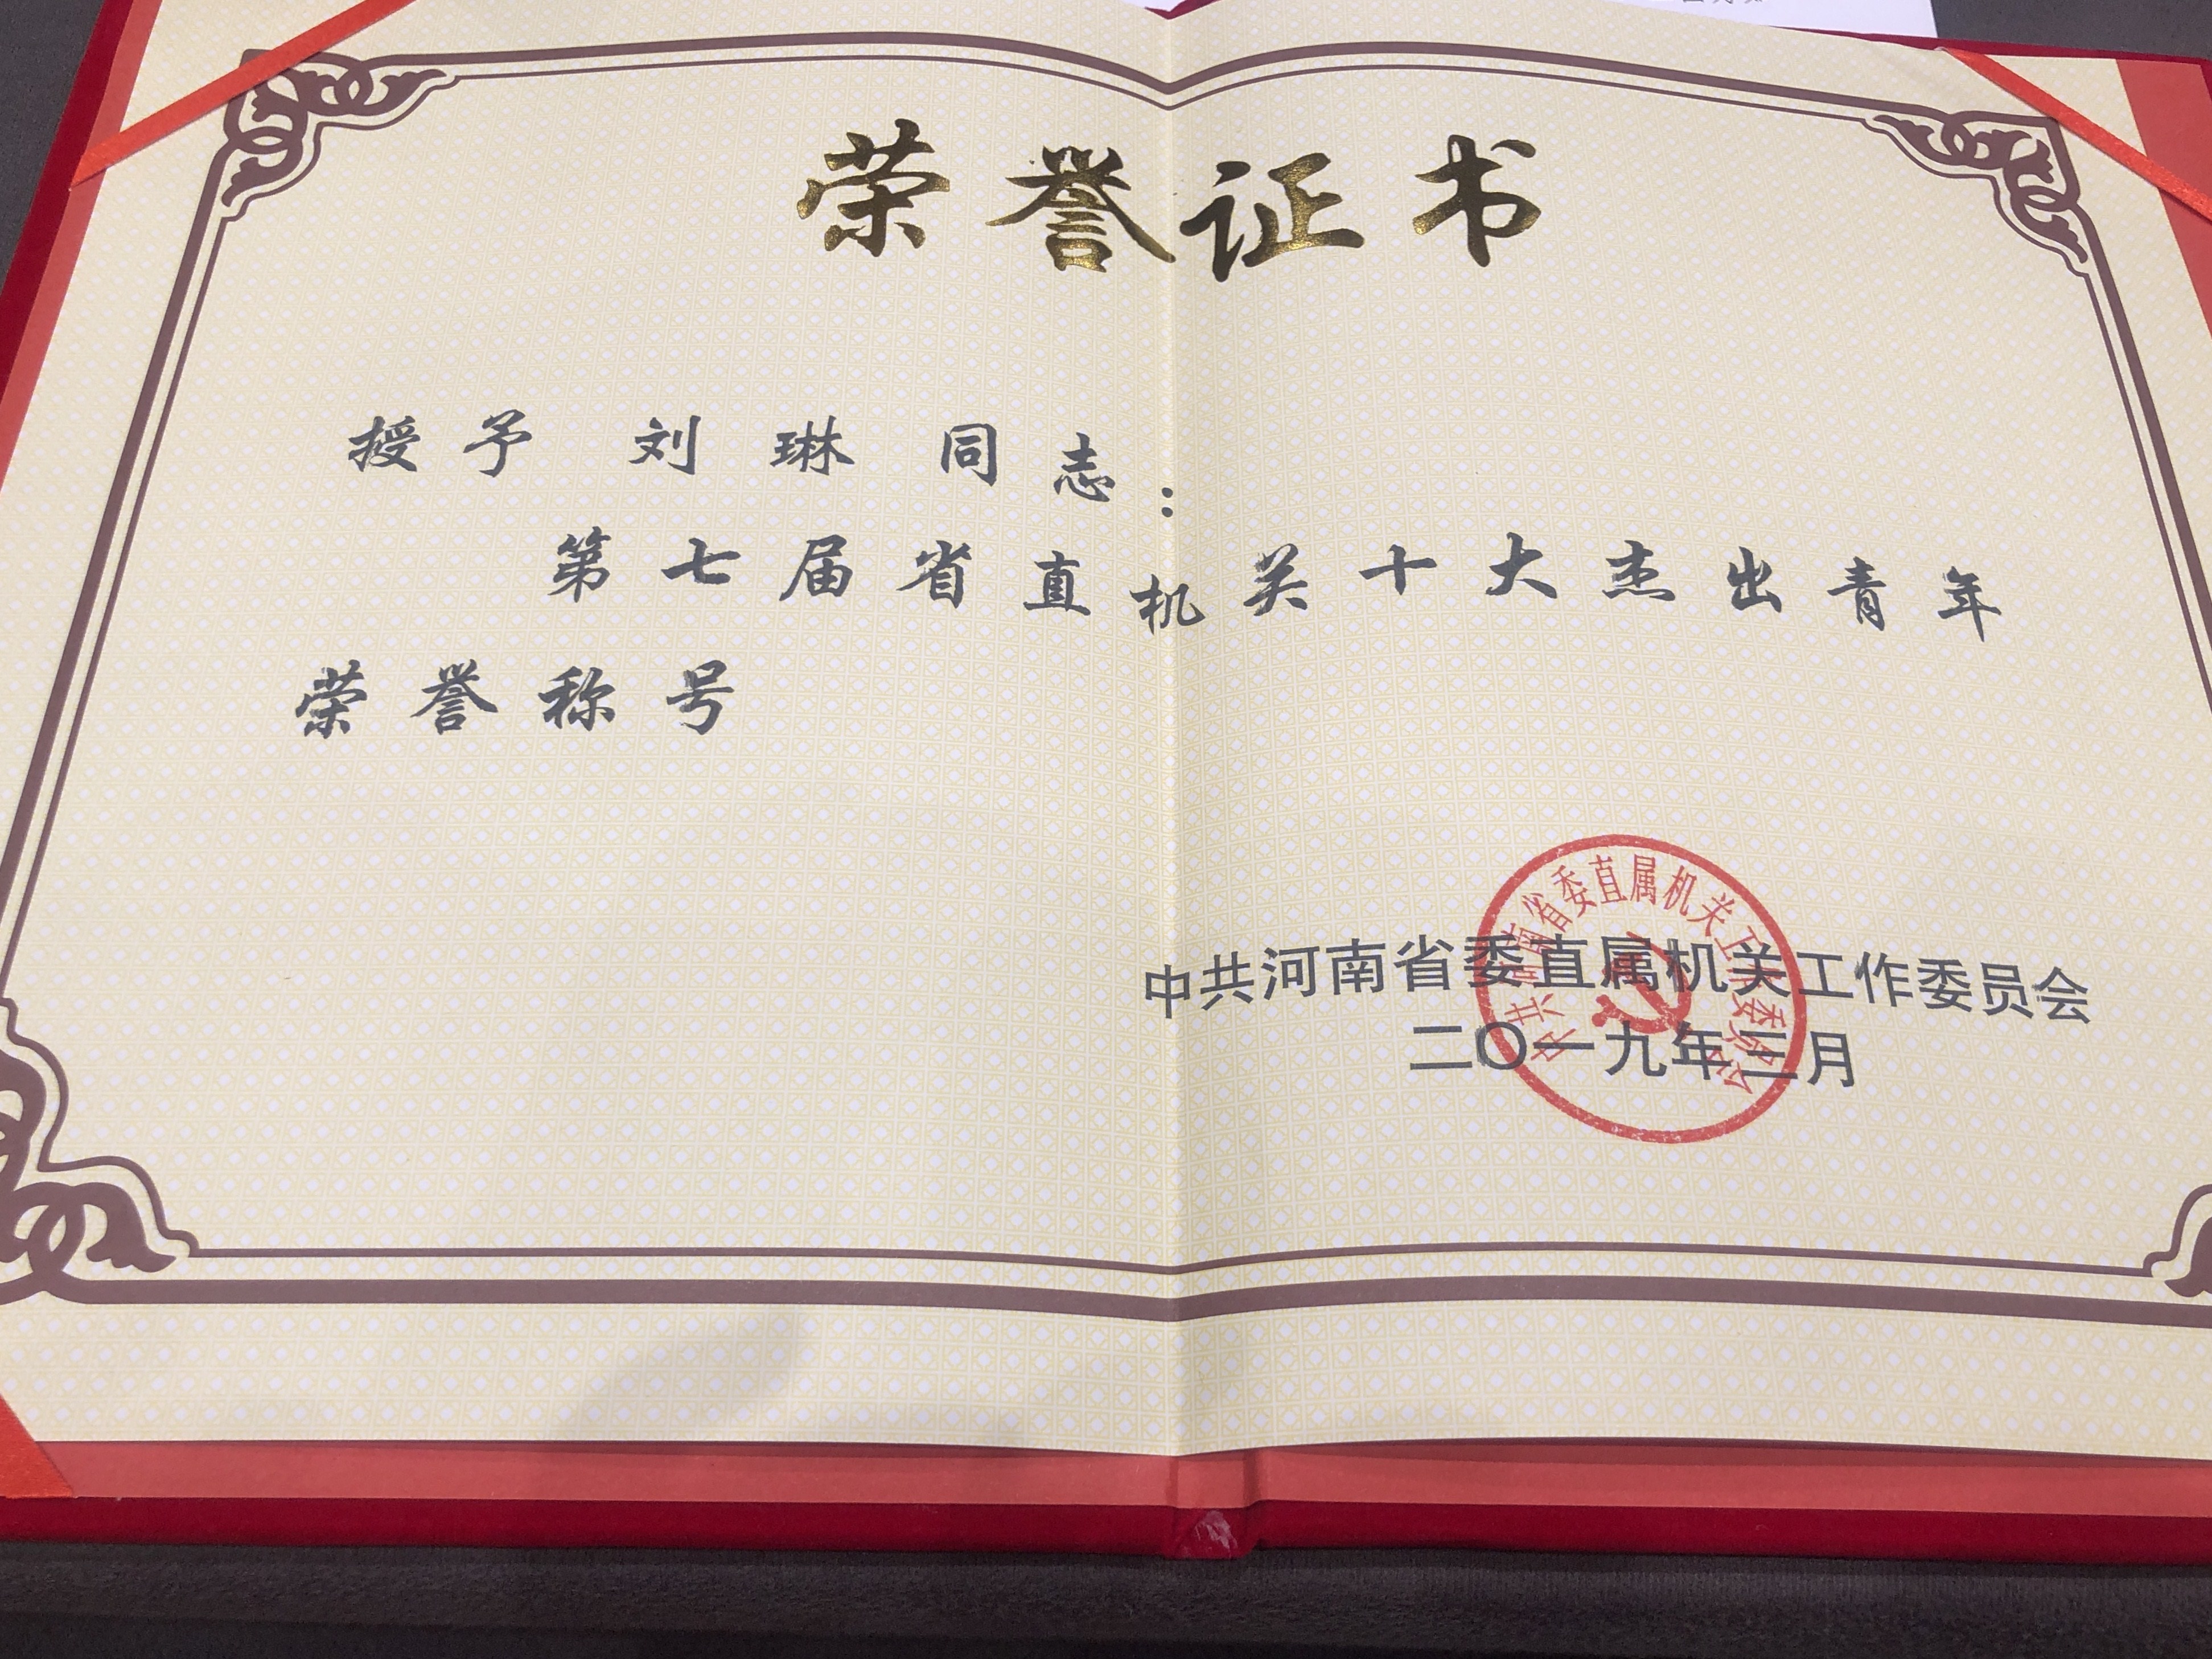 荣誉证书
授予 刘琳 同志：
第七届省直机关十大杰出青年
荣誉称号
中共河南省委直属机关工作委员会
二〇一九年三月
中共河南省委直属机关工作委员会